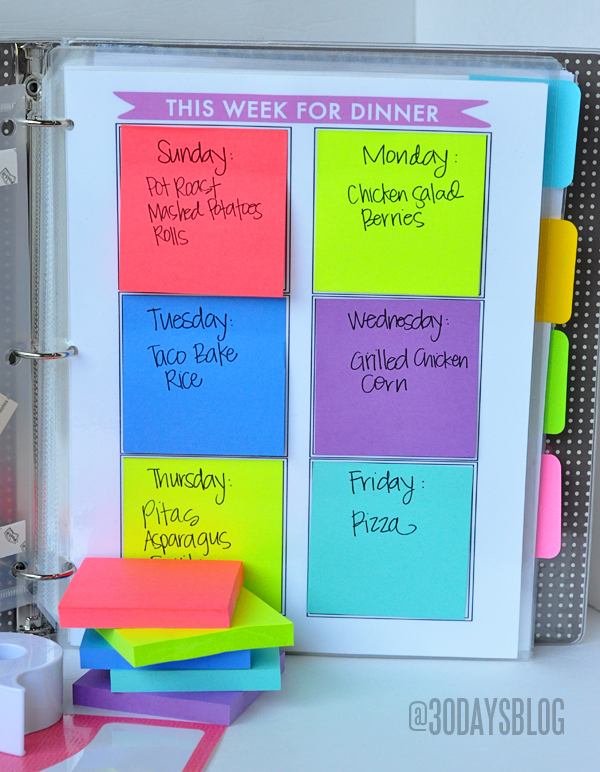 THIS WEEK FOR DINNER
Sunday:
Pot Roast
Mashed Potatoes
Rolls
Monday:
Chicken Salad
Berries
Tuesday:
Taco Bake
Rice
Wednesday:
Grilled Chicken
Corn
Thursday:
Pitas
Asparagus
Friday:
Pizza
@30DAYSBLOG